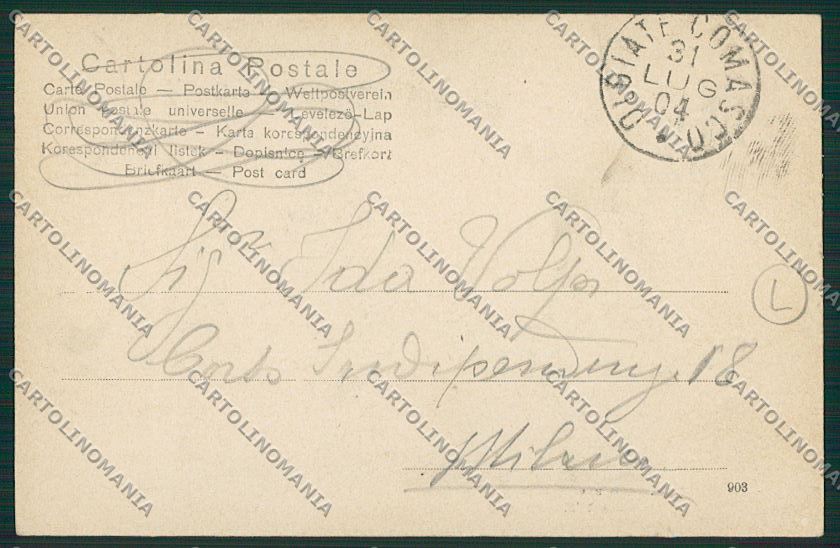 Cartolina Postale
Carte Postale — Postkarte — Weltpostverein
Union postale universelle — Levelező-Lap
Correspondenzkarte — Karta korespondencyjna
Korespondenční lístek — Dopisnice — Brefkort
Briefkaart — Post card
CISIATE COMASCO
31
LUG
04
Sigra Ida Volpi
Corso Indipendenza 18
Milano
L
903
CARTOLINOMANIA